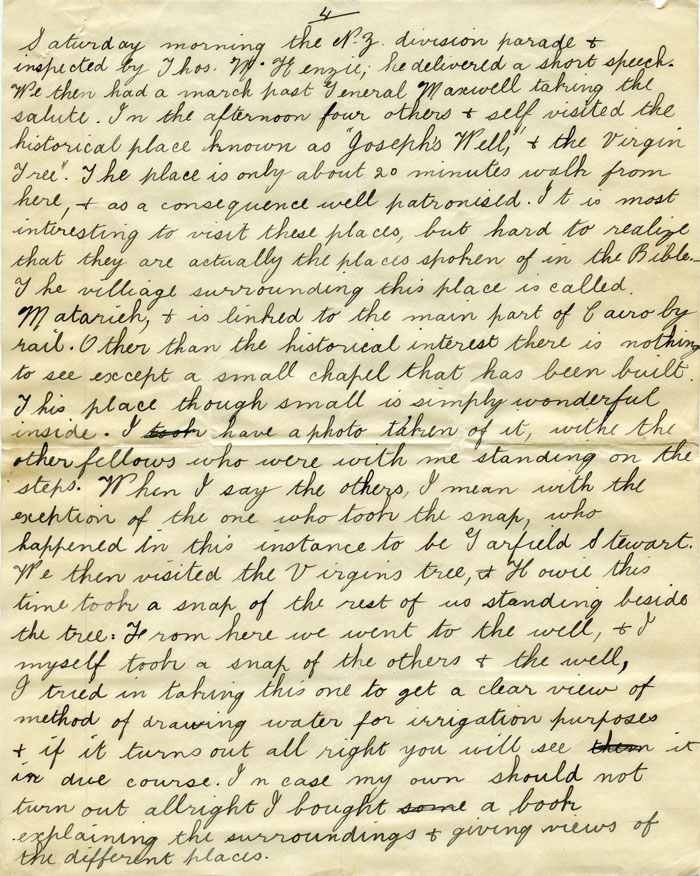 4
Saturday morning the N.Z. division parade &
inspected by Thos. Mc Henzie; he delivered a short speech.
We then had a march past General Maxwell taking the
salute. In the afternoon four others & self visited the
historical place known as "Joseph's Well," & the Virgin
Tree". The place is only about 20 minutes walk from
here, & as a consequence well patronised. It is most
interesting to visit these places, but hard to realize
that they are actually the places spoken of in the Bible.
The villiage surrounding this place is called
Matarieh, & is linked to the main part of Cairo by
rail. Other than the historical interest there is nothing
to see except a small chapel that has been built.
This place though small is simply wonderful
inside. I took have a photo taken of it, withe the
other fellows who were with me standing on the
steps. When I say the others, I mean with the
exeption of the one who took the snap, who
happened in this instance to be Garfield Stewart.
We then visited the Virgins tree, & Howie this
time took a snap of the rest of us standing beside
the tree: From here we went to the well, & I
myself took a snap of the others & the well,
I tried in taking this one to get a clear view of
method of drawing water for irrigation purposes
& if it turns out all right you will see them it
in due course. In case my own should not
turn out allright I bought some a book
explaining the surroundings & giving views of
the different places.